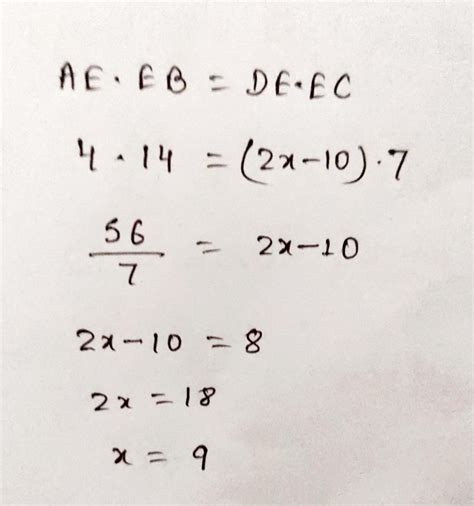 AE · EB = DE · EC
4 · 14 = (2x-10) · 7
56/7 = 2x-10
2x-10 = 8
2x = 18
x = 9